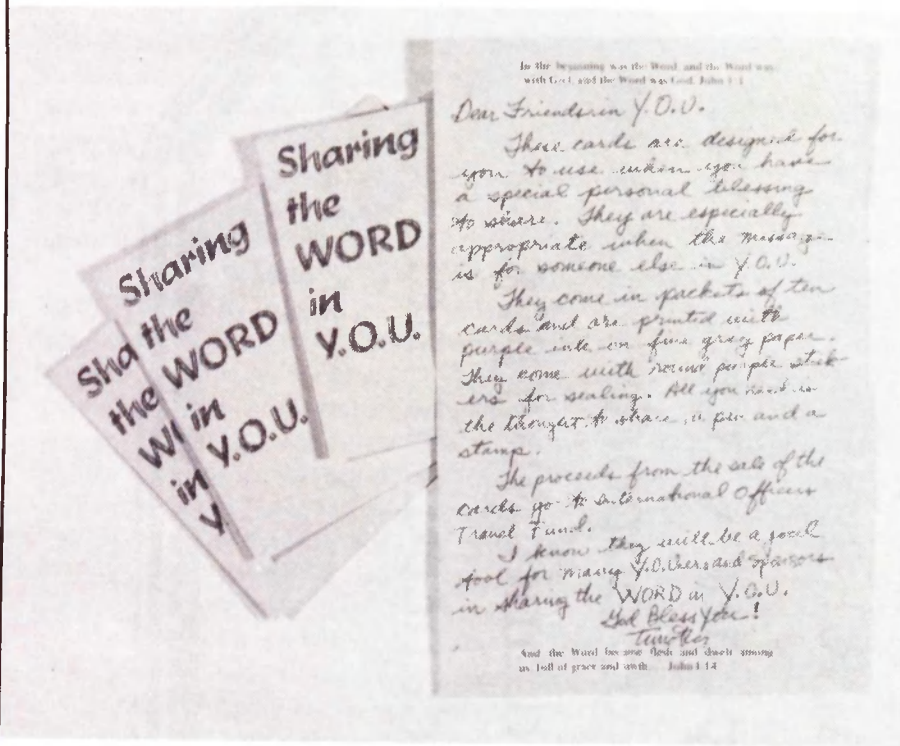 Sharing
the
WORD
in
Y.O.U.
Sharing
the
WORD
in
Y.O.U.
Sha
the
W
in
Y
In the beginning was the Word, and the Word was
with God, and the Word was God. John 1:1
Dear Friends in Y.O.U.
These cards are designed for
you to use when you have
a special personal blessing
to share. They are especially
appropriate when the message
is for someone else in Y.O.U.
They come in packets of ten
cards and are printed with
purple ink on fine gray paper.
They come with round purple stick
ers for sealing. All you need is
the thought to share, a pen and a
stamp.
The proceeds from the sale of the
cards go to International Officers
Travel Fund.
I know they will be a
tool for many Y.O.Uers and sponsors
in sharing the WORD in Y.O.U.
God Bless You!
Timothy
And the Word became flesh and dwelt among
us full of grace and truth John 1:14